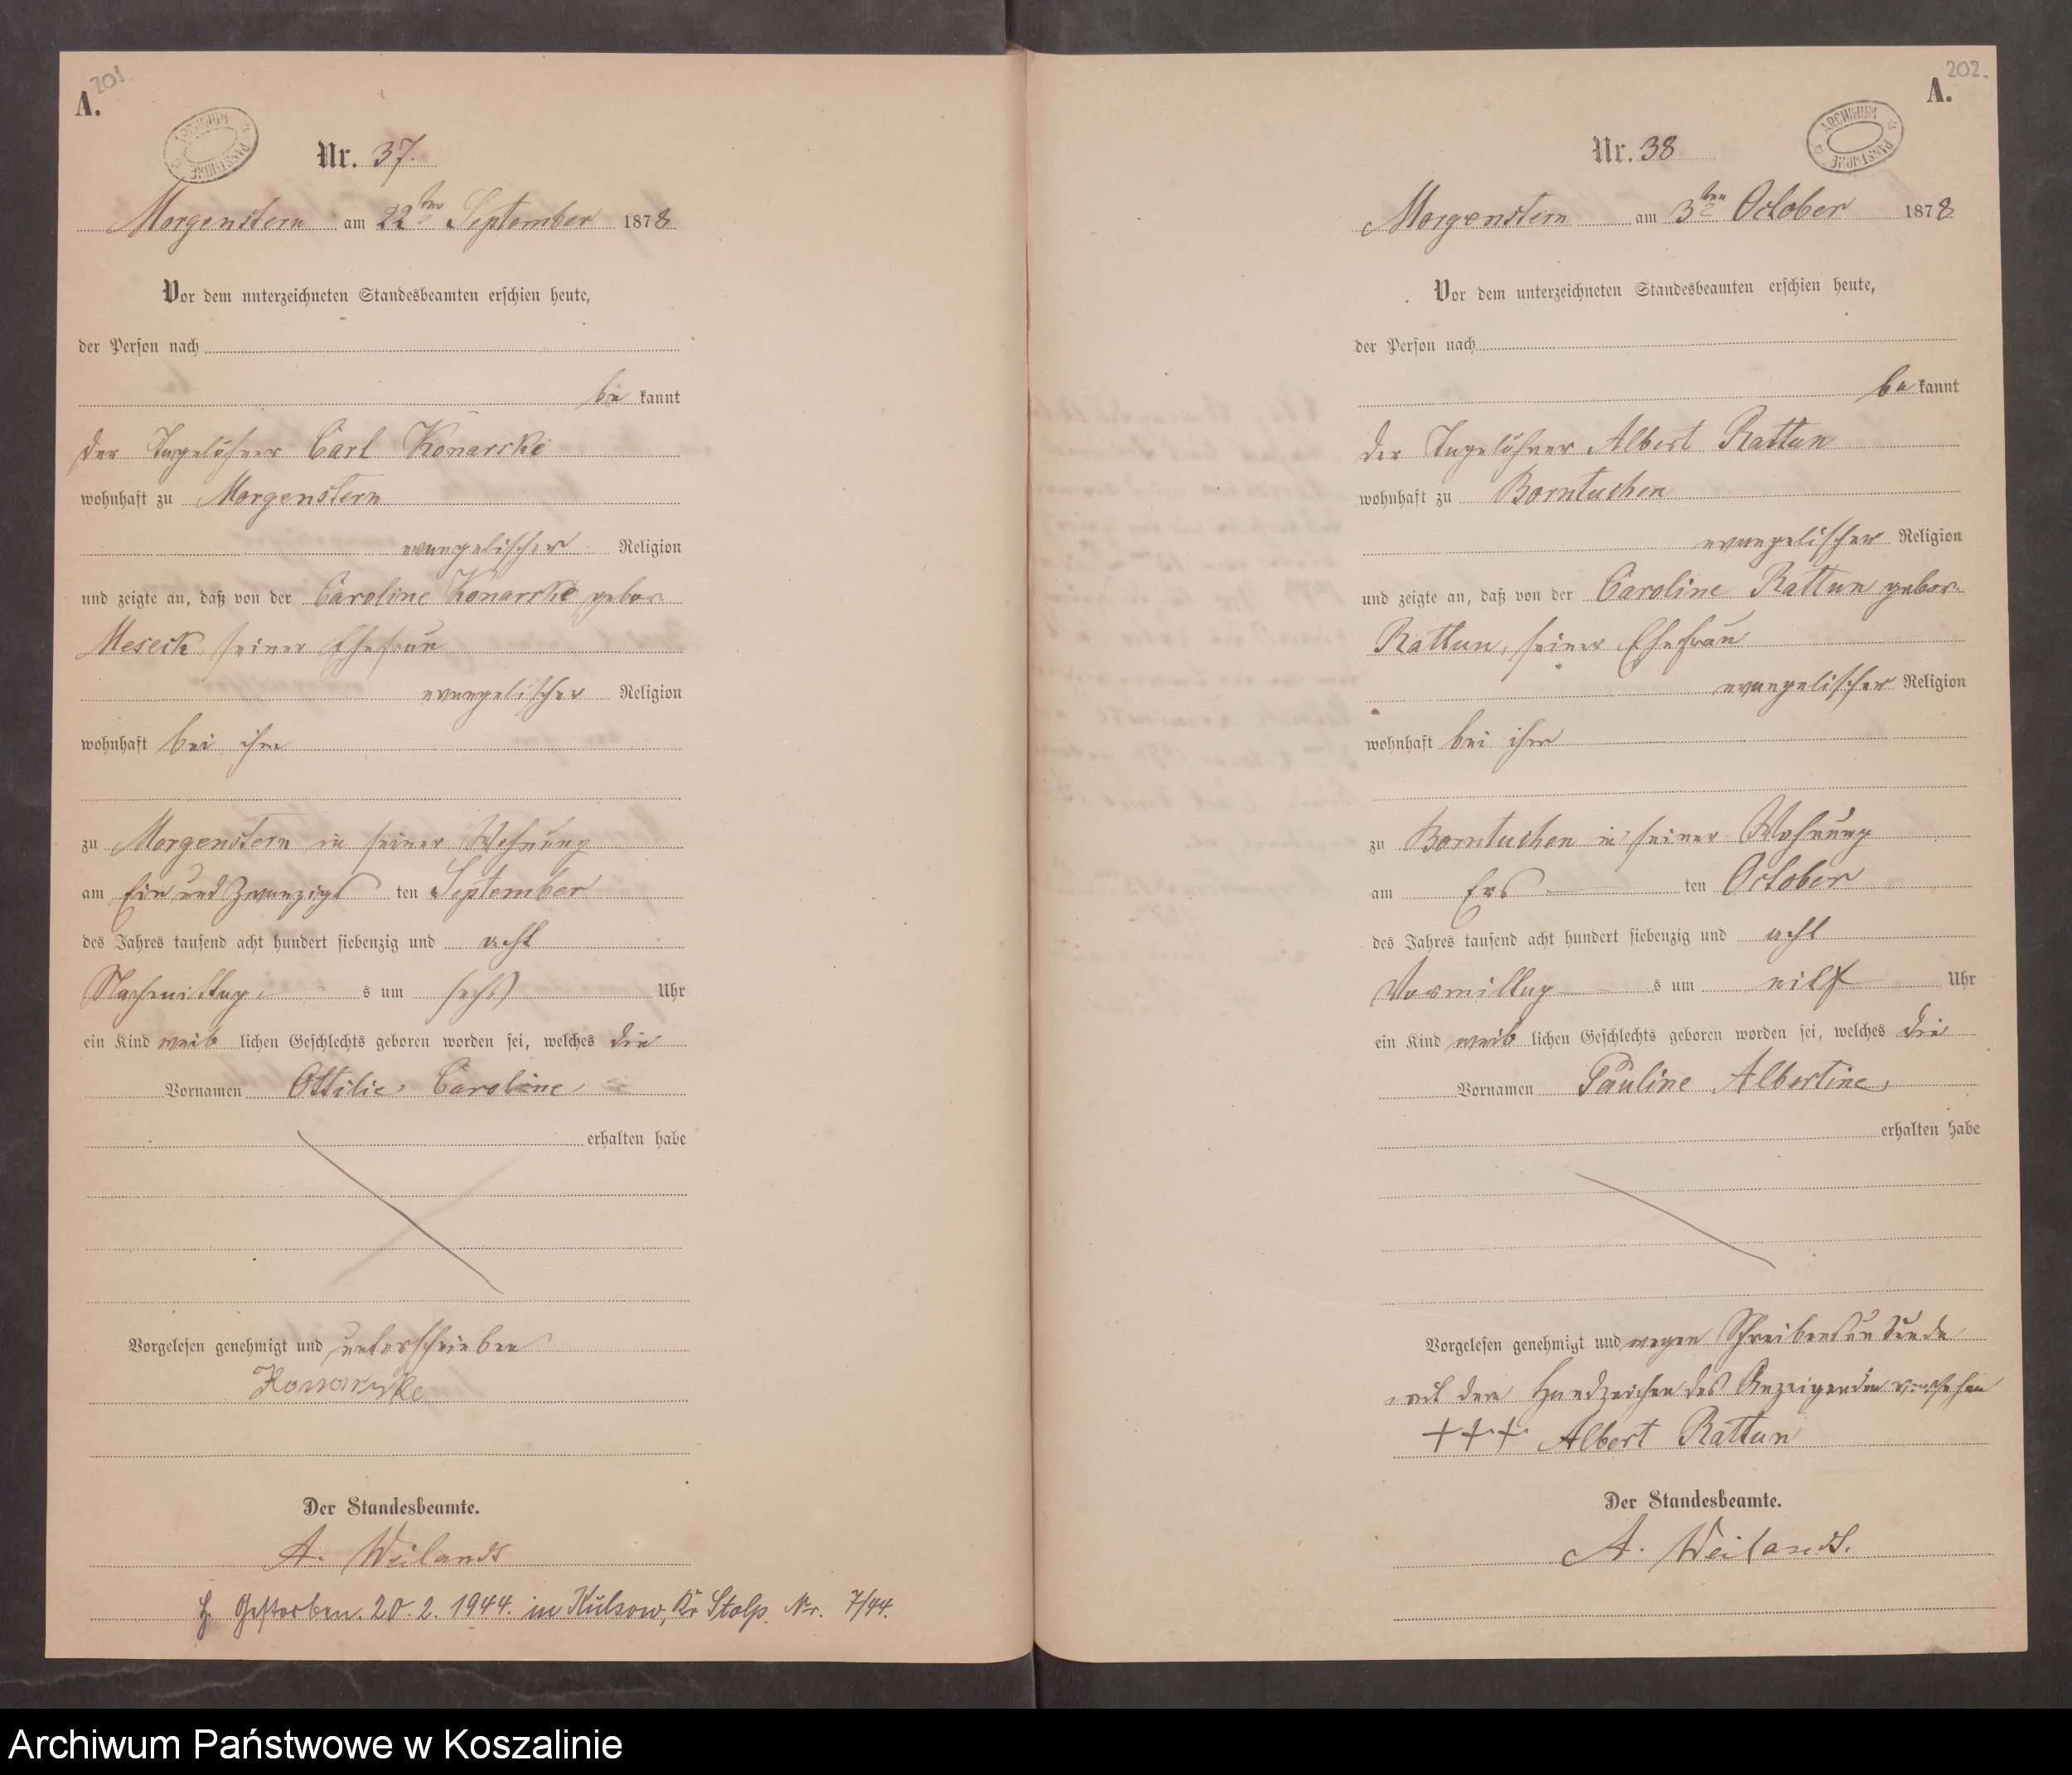 201.
A.
ARCHIWUM PAŃSTWOWE
Nr. 37.
Morgenstern am 22ten September 1878
Vor dem unterzeichneten Standesbeamten erschien heute,
der Person nach
be kannt
der Tagelöhner Carl Konarske
wohnhaft zu Morgenstern
evangelischer Religion
und zeigte an, daß von der Caroline Konarske gebor.
Meseck seiner Ehefrau
evangelischer Religion
wohnhaft bei ihm
zu Morgenstern in seiner Wohnung
am Ein und Zwanzigs ten September
des Jahres tausend acht hundert siebenzig und acht
Nachmittag s um sechs Uhr
ein Kind weib lichen Geschlechts geboren worden sei, welches die
Vornamen Ottilie Caroline
erhalten habe
Vorgelesen genehmigt und unterschrieben
Konarske
Der Standesbeamte.
A. Weilandt
Gestorben. 20.2.1944. in Kulsow, Kr Stolp. Nr. 7/44.
202.
A.
ARCHIWUM PAŃSTWOWE
Nr. 38
Morgenstern am 3ten October 1878
Vor dem unterzeichneten Standesbeamten erschien heute,
der Person nach
be kannt
der Tagelöhner Albert Rattun
wohnhaft zu Borntuchen
evangelischer Religion
und zeigte an, daß von der Caroline Rattun gebor.
Rattun, seiner Ehefrau
evangelischer Religion
wohnhaft bei ihm
zu Borntuchen in seiner Wohnung
am Ers ten October
des Jahres tausend acht hundert siebenzig und acht
Vormittag s um elf Uhr
ein Kind weib lichen Geschlechts geboren worden sei, welches die
Vornamen Pauline Albertine,
erhalten habe
Vorgelesen genehmigt und wegen Schreibensunkunde
mit dem Handzeichen des Anzeigenden versehen
+++ Albert Rattun
Der Standesbeamte.
A. Weilandt.
Archiwum Państwowe w Koszalinie